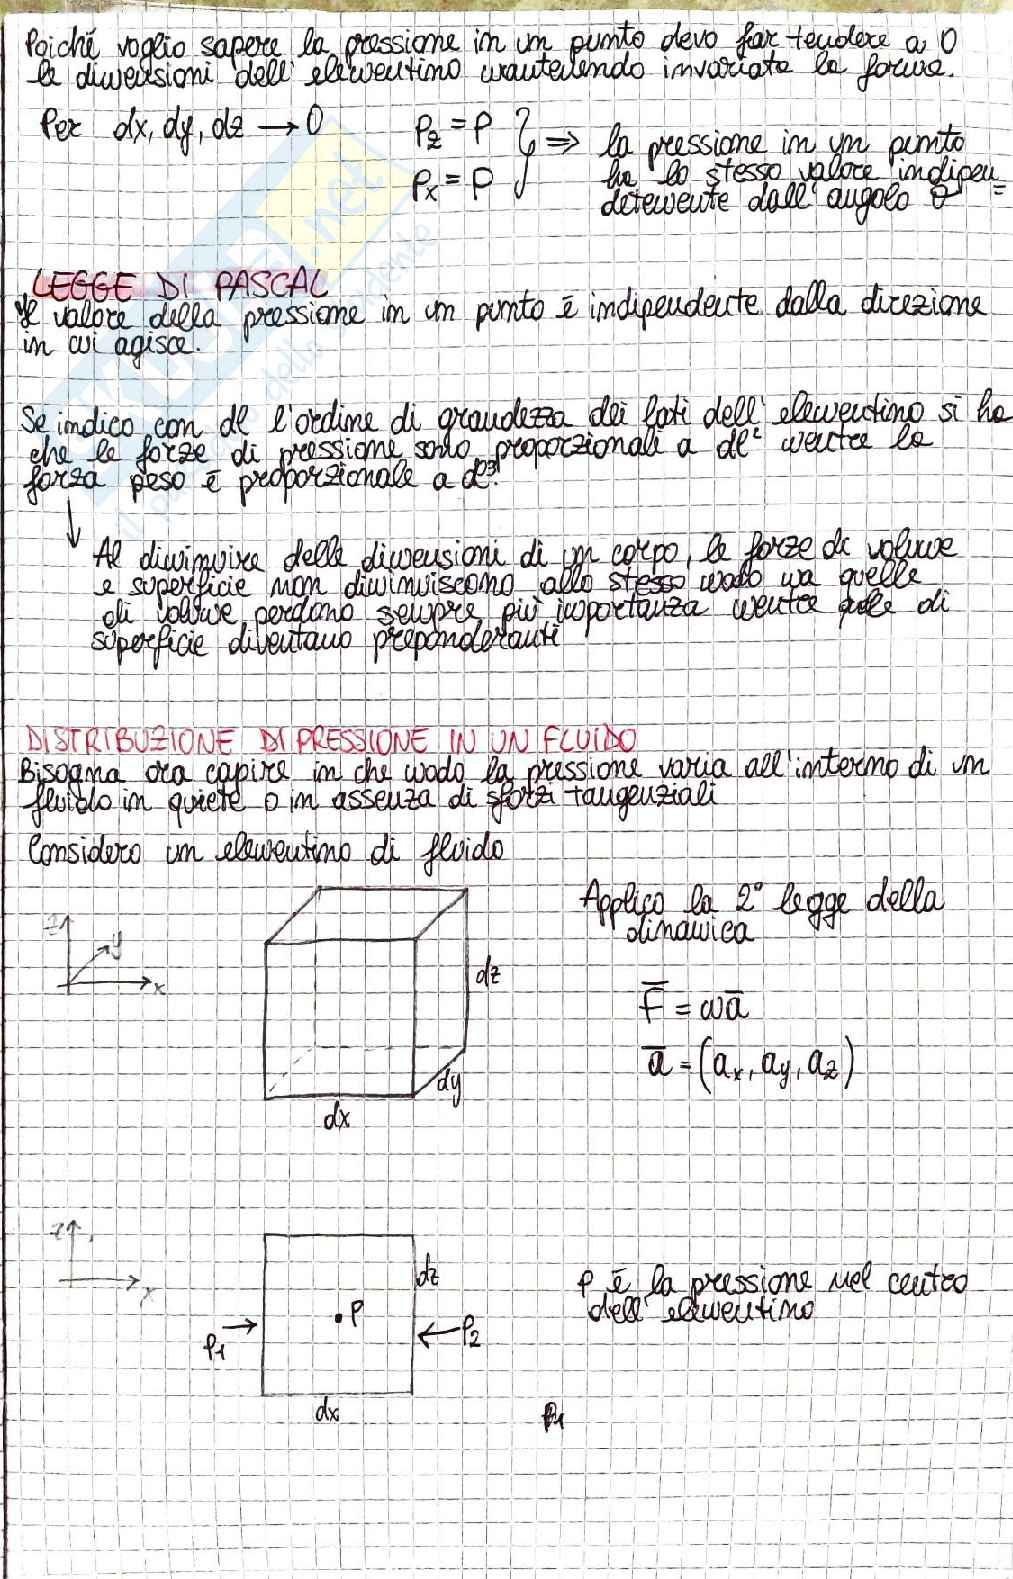 Poiché voglio sapere la pressione in un punto devo far tendere a 0
le dimensioni dell'elementino mantenendo invariata la forma.
Per dx, dy, dz → 0
Pz = P
Px = P
⇒ la pressione in un punto
ha lo stesso valore indipen=
detemente dall'angolo θ
LEGGE DI PASCAL
Il valore della pressione in un punto è indipendente dalla direzione
in cui agisce.
Se indico con dl l'ordine di grandezza dei lati dell'elementino si ha
che le forze di pressione sono proporzionali a dl² mentre la
forza peso è proporzionale a dl³.
Al diminuire delle dimensioni di un corpo, le forze di volume
e superficie non diminuiscono allo stesso modo ma quelle
di volume perdono sempre più importanza mentre quele di
superficie diventano preponderanti
DISTRIBUZIONE DI PRESSIONE IN UN FLUIDO
Bisogna ora capire in che modo la pressione varia all'interno di un
fluido in quiete o in assenza di sforzi tangenziali
Considero un elementino di fluido
Applico la 2° legge della
dinamica
z
y
x
dz
dy
dx
F̅ = ma̅
a̅ = (ax, ay, az)
z
x
dz
P
P1
P2
dx
P è la pressione nel centro
dell'elementino
P1
il
dello studente
net